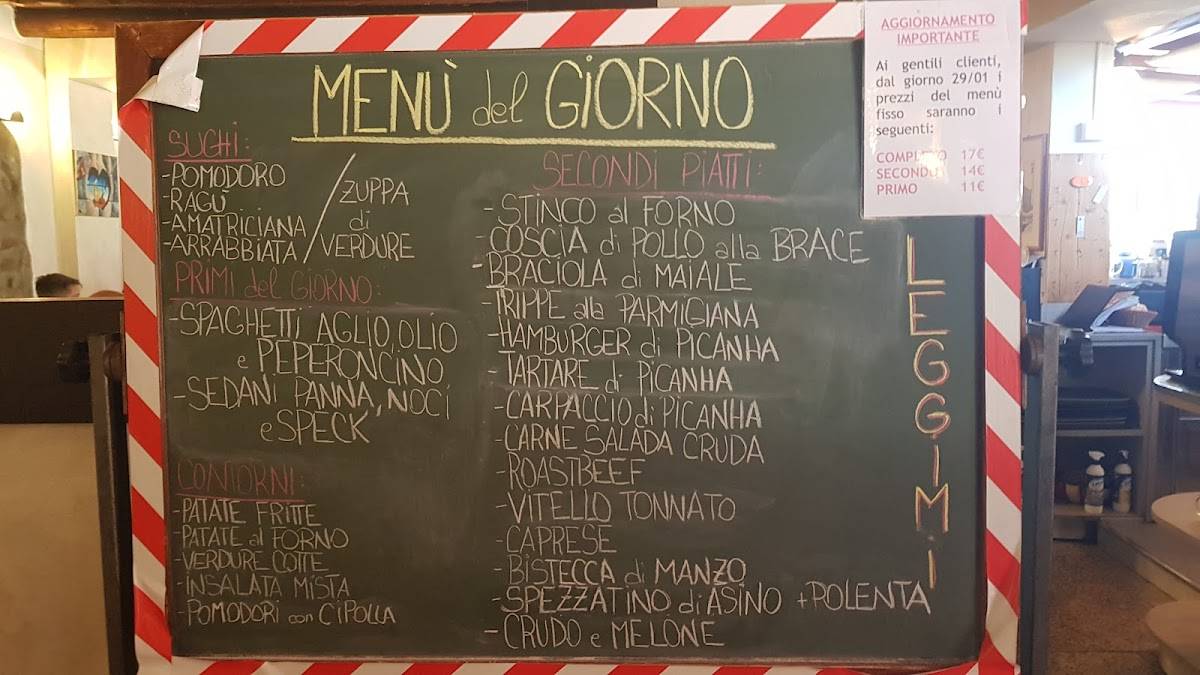 MENÙ del GIORNO
SUGHI:
-POMODORO
-RAGÙ
-AMATRICIANA
-ARRABBIATA
/ ZUPPA
di
VERDURE
PRIMI del GIORNO:
-SPAGHETTI AGLIO, OLIO
e PEPERONCINO
-SEDANI PANNA, NOCI
e SPECK
CONTORNI:
-PATATE FRITTE
-PATATE al FORNO
-VERDURE COTTE
-INSALATA MISTA
-POMODORI con CIPOLLA
SECONDI PIATTI:
-STINCO al FORNO
-COSCIA di POLLO alla BRACE
-BRACIOLA di MAIALE
-TRIPPE alla PARMIGIANA
-HAMBURGER di PICANHA
-TARTARE di PICANHA
-CARPACCIO di PICANHA
-CARNE SALADA CRUDA
-ROASTBEEF
-VITELLO TONNATO
-CAPRESE
-BISTECCA di MANZO
-SPEZZATINO di ASINO + POLENTA
-CRUDO e MELONE
LEGGIMI
AGGIORNAMENTO
IMPORTANTE
Ai gentili clienti,
dal giorno 29/01 i
prezzi del menù
fisso saranno i
seguenti:
COMPLETO 17€
SECONDO 14€
PRIMO 11€